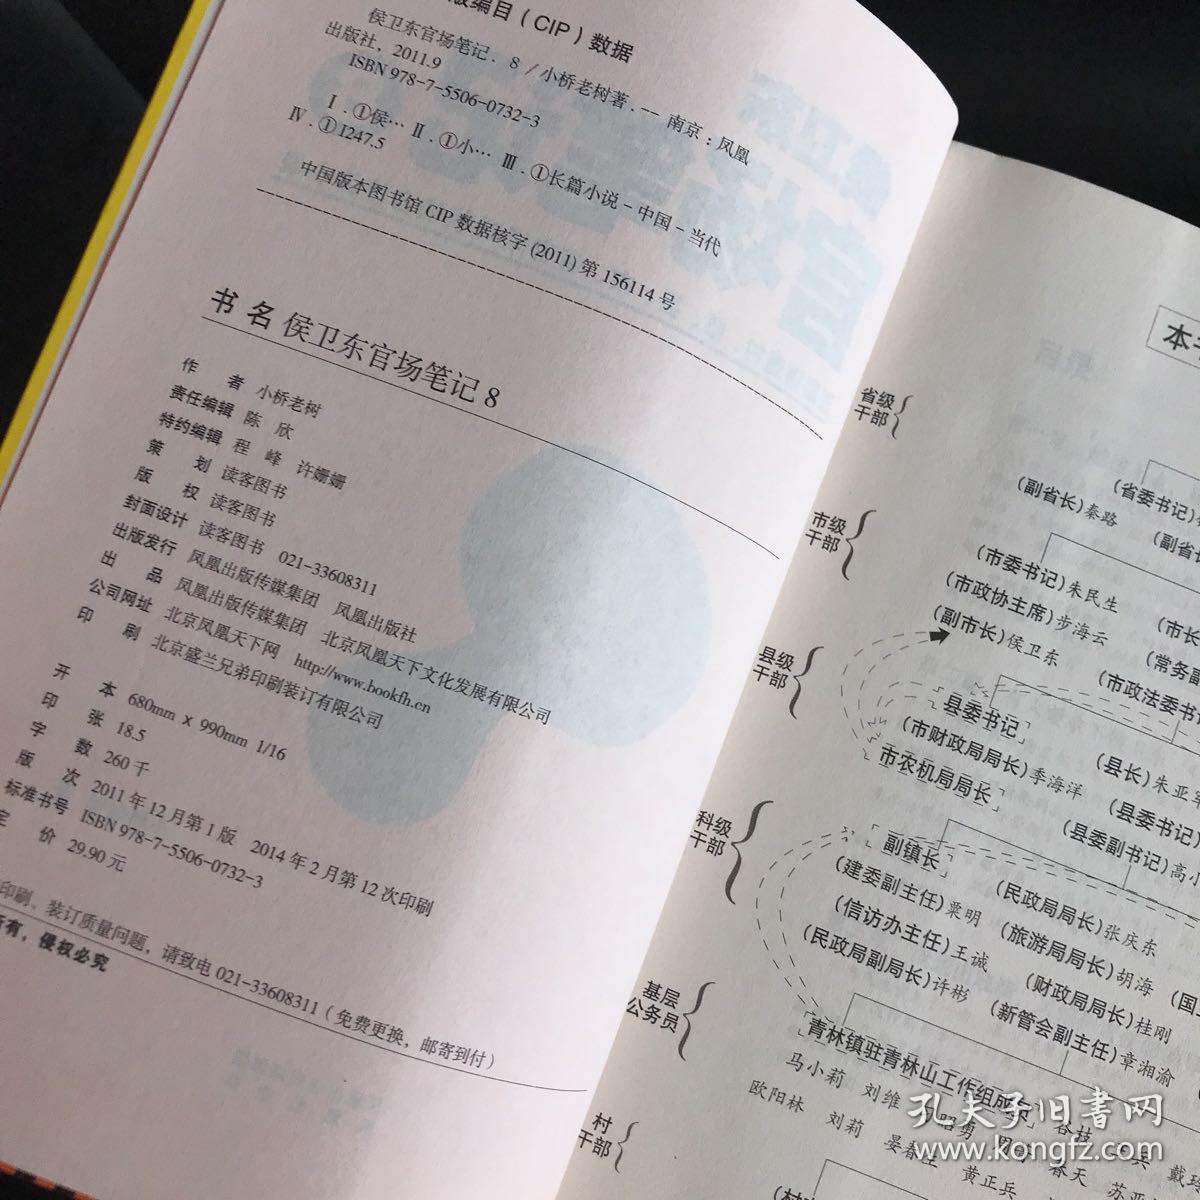 版编目（CIP）数据
侯卫东官场笔记．8／小桥老树著．-- 南京：凤凰
出版社，2011.9
ISBN 978-7-5506-0732-3
Ⅰ．①侯… Ⅱ．①小… Ⅲ．①长篇小说－中国－当代
Ⅳ．①I247.5
中国版本图书馆 CIP 数据核字 (2011) 第 156114 号
书 名 侯卫东官场笔记 8
作 者 小桥老树
责任编辑 陈 欣
特约编辑 程 峰 许姗姗
策 划 读客图书
版 权 读客图书
封面设计 读客图书 021-33608311
出版发行 凤凰出版传媒集团 凤凰出版社
出 品 凤凰出版传媒集团 北京凤凰天下文化发展有限公司
公司网址 北京凤凰天下网 http://www.bookfh.cn
印 刷 北京盛兰兄弟印刷装订有限公司
开 本 680mm x 990mm 1/16
印 张 18.5
字 数 260 千
版 次 2011 年 12 月第 1 版 2014 年 2 月第 12 次印刷
标准书号 ISBN 978-7-5506-0732-3
定 价 29.90 元
印刷、装订质量问题，请致电 021-33608311（免费更换，邮寄到付）
所有，侵权必究
本书
省级
干部
(省委书记)
(副省长)秦路
(副省长
市级
干部
(市委书记)朱民生
(市长
(市政协主席)步海云
(常务副
(副市长)侯卫东
(市政法委书记
县级
干部
县委书记
(市财政局局长)季海洋
(县长)朱亚军
市农机局局长
(县委书记)
(县委副书记)高小
科级
干部
副镇长
(建委副主任)粟明
(民政局局长)张庆东
(信访办主任)王诚
(旅游局局长)胡海
(国土
(民政局副局长)许彬
(财政局局长)桂刚
(新管会副主任)章湘渝
基层
公务员
青林镇驻青林山工作组成员
马小莉 刘维 谷枝
欧阳林 刘莉 晏春生 春天 苏亚
黄正兵
村
干部
(村
孔夫子旧书网
www.kongfz.com